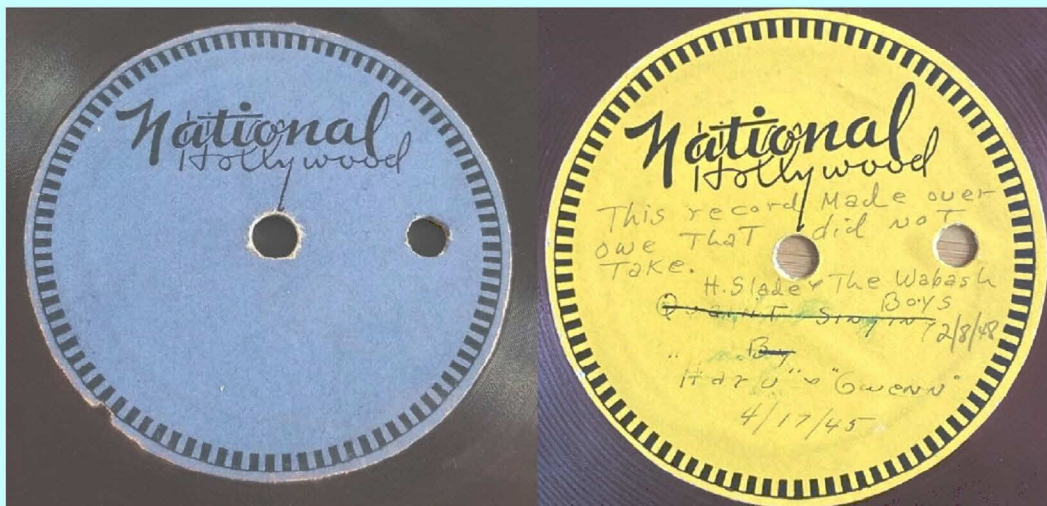 National
Hollywood
National
Hollywood
This record Made over
owe That did not
Take.
H. Slade + The Wabash
Boys
12/8/48
By
"Gwenn"
4/17/45